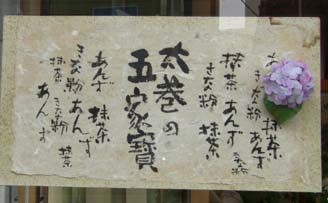 あん
きな粉 抹茶
抹茶 あんず
きな粉 あんず
抹茶 きな粉
太巻の
五家寳
あんず 抹茶
きな粉 あんず
抹茶 きな粉 抹茶
あんず